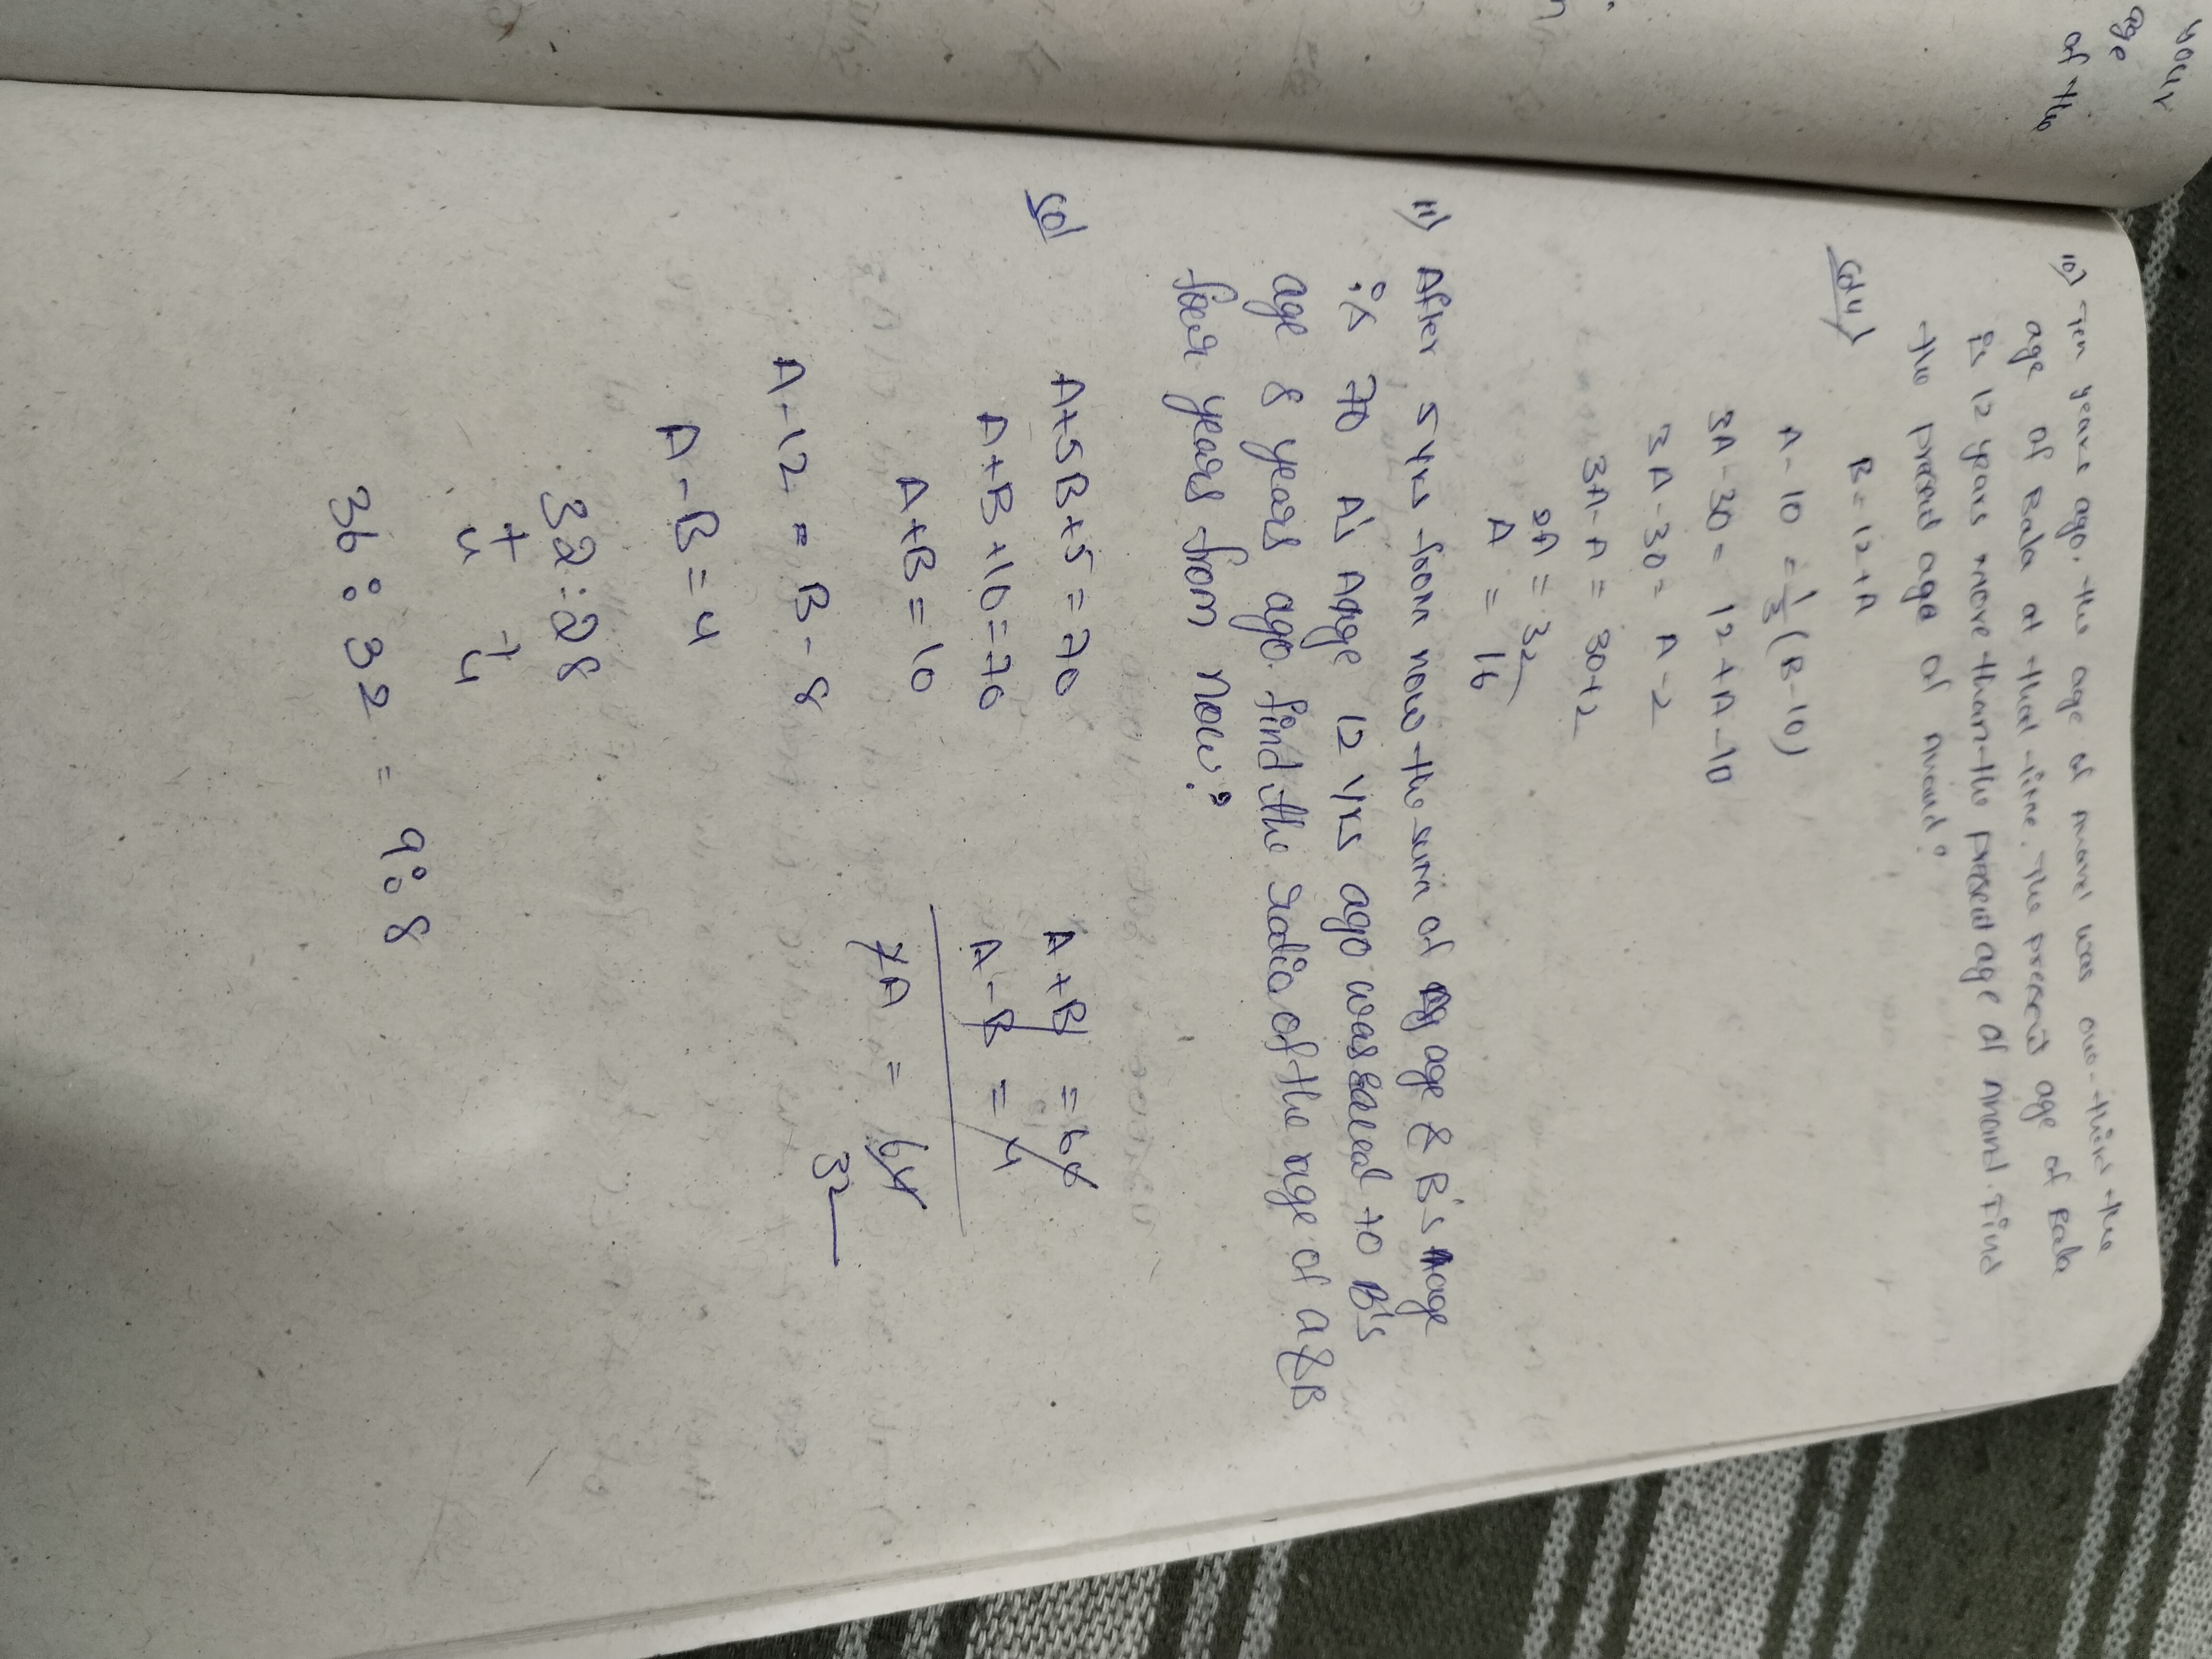 your
age
of the
10) Ten years ago, the age of Anand was one-third the
age of Bala at that time. The present age of Bala
is 12 years more than the present age of Anand. Find
the present age of Anand?
Soln)
B = 12+A
A - 10 = 1/3 (B-10)
3A - 30 = 12 + A - 10
3A - 30 = A - 2
3A - A = 30+2
2A = 32
A = 16
11) After 5 yrs from now the sum of age & B's age
is 70 A's Age 12 yrs ago was eaceal to B's
age 8 years ago. find the radio of the age of a & B
four years from now?
Sol
A+5B+5 = 70
A+B+10=70
A+B = 10
A-12 = B-8
A-B=4
A+B = 64
A-B = 4
2A = 64
32
32:28
+
4 4
36 : 32 = 9:8